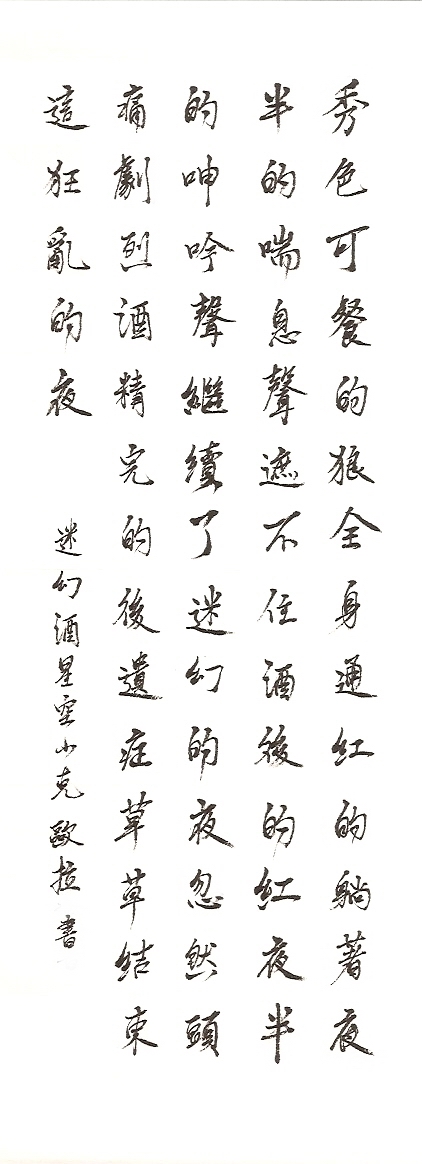 秀色可餐的狼全身通紅的躺著夜
半的喘息聲遮不住酒後的紅夜半
的呻吟聲繼續了迷幻的夜忽然頭
痛劇烈酒精完的後遺症草草結束
這狂亂的夜
迷幻酒星空小克歐拉書